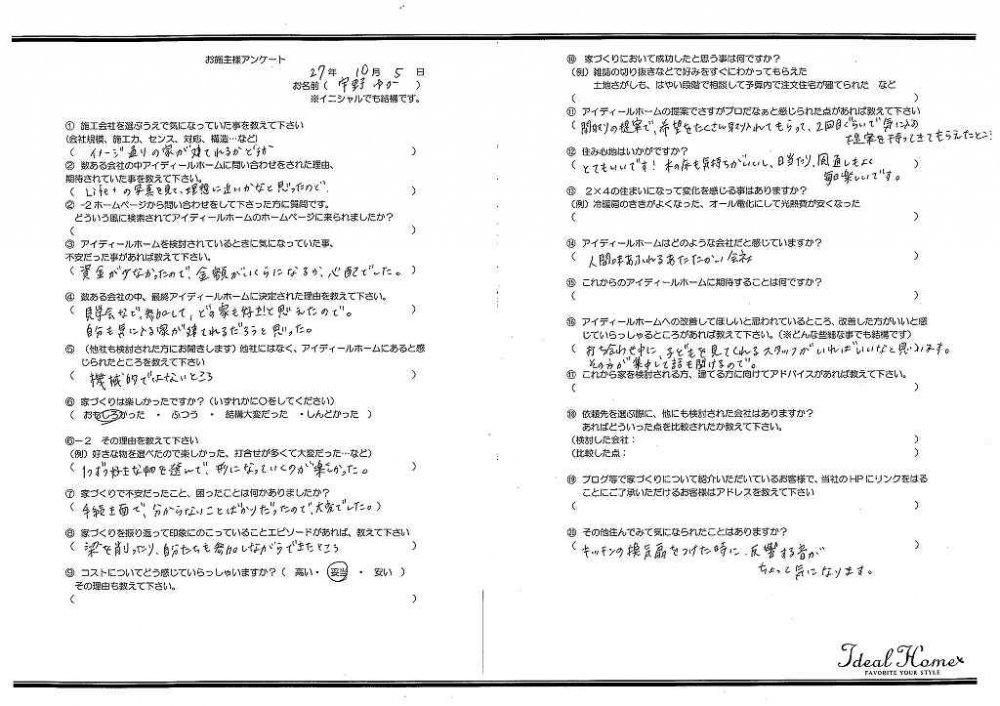 お施主様アンケート
27年 10月 5日
お名前（宇野 ゆか）
※イニシャルでも結構です。
① 施工会社を選ぶうえで気になっていた事を教えて下さい
(会社規模、施工力、センス、対応、構造…など)
（ イメージ通りの家が建てれるかどうか ）
② 数ある会社の中アイディールホームに問い合わせをされた理由、
期待されていた事を教えて下さい。
（ Life+の写真を見て、理想に近いかなと思ったので。 ）
②-2ホームページから問い合わせをして下さった方に質問です。
どういう風に検索されてアイディールホームのホームページに来られましたか?
（ ）
③ アイディールホームを検討されているときに気になっていた事、
不安だった事があれば教えて下さい。
（ 資金が少なかったので、金額がいくらになるか、心配でした。）
④ 数ある会社の中、最終アイディールホームに決定された理由を教えて下さい。
（ 見学会など、参加して、どの家も好きだと思えたので。
自分も気に入る家が建てれるだろうと思った。 ）
⑤ （他社も検討された方にお聞きします）他社にはなく、アイディールホームにあると感
じられたところを教えて下さい
（ 機械的でないところ ）
⑥ 家づくりは楽しかったですか? （いずれかに○をしてください）
（ おもしろかった ・ ふつう ・ 結構大変だった ・しんどかった ）
⑥ー2 その理由を教えて下さい
(例）好きな物を選べたので楽しかった、打合せが多くて大変だった…など)
（ 1つずつ好きな物を選んで、形になっていくのが楽しかった。 ）
⑦ 家づくりで不安だったこと、困ったことは何かありましたか?
（ 手続き面で、分からないことばかりだったので、大変でした。）
⑧ 家づくりを振り返って印象にのこっていることエピソードがあれば、教えて下さい
（ 梁を削ったり、自分たちも参加しながらできたところ ）
⑨ コストについてどう感じていらっしゃいますか? （ 高い・ 妥当 ・ 安い ）
その理由も教えて下さい。
（ ）
⑩ 家づくりにおいて成功したと思う事は何ですか?
(例）雑誌の切り抜きなどで好みをすぐにわかってもらえた
土地さがしも、はやい段階で相談して予算内で注文住宅が建てられた など
（ ）
⑪ アイディールホームの提案でさすがプロだなぁと感じられた点があれば教えて下さい
（ 間取りの提案で、希望をたくさん取り入れてもらって、2回目ぐらいで気に入る
提案を持ってきてもらえたところ）
⑫ 住み心地はいかがですか?
（ とてもいいです! 木の床も気持ちがいいし、日当たり、風通しもよく
毎日楽しいです。
⑬ 2×4の住まいになって変化を感じる事はありますか?
(例）冷暖房のききがよくなった、オール電化にして光熱費が安くなった
（ ）
⑭ アイディールホームはどのような会社だと感じていますか?
（ 人間味あふれるあたたかい会社 ）
⑮ これからのアイディールホームに期待することは何ですか?
（ ）
⑯ アイディールホームへの改善してほしいと思われているところ、改善した方がいいと感
じていらっしゃるところがあれば教えて下さい。(※どんな些細な事でも結構です)
（ 打ち合わせ中に、子どもを見てくれるスタッフがいればいいなと思います。
その方が集中して話も聞けるので。 ）
⑰ これから家を検討される方、建てる方に向けてアドバイスがあれば教えて下さい。
（ ）
⑱ 依頼先を選ぶ際に、他にも検討された会社はありますか?
あればどういった点を比較されたか教えて下さい。
(検討した会社： ）
(比較した点： ）
⑲ ブログ等で家づくりについて紹介いただいているお客様で、当社のHPにリンクをはる
ことにご了承いただけるお客様はアドレスを教えて下さい
（ ）
⑳ その他住んでみて気になられたことはありますか?
（ キッチンの換気扇をつけた時に、反響する音が
ちょっと気になります。 ）
Ideal Home
FAVORITE YOUR STYLE